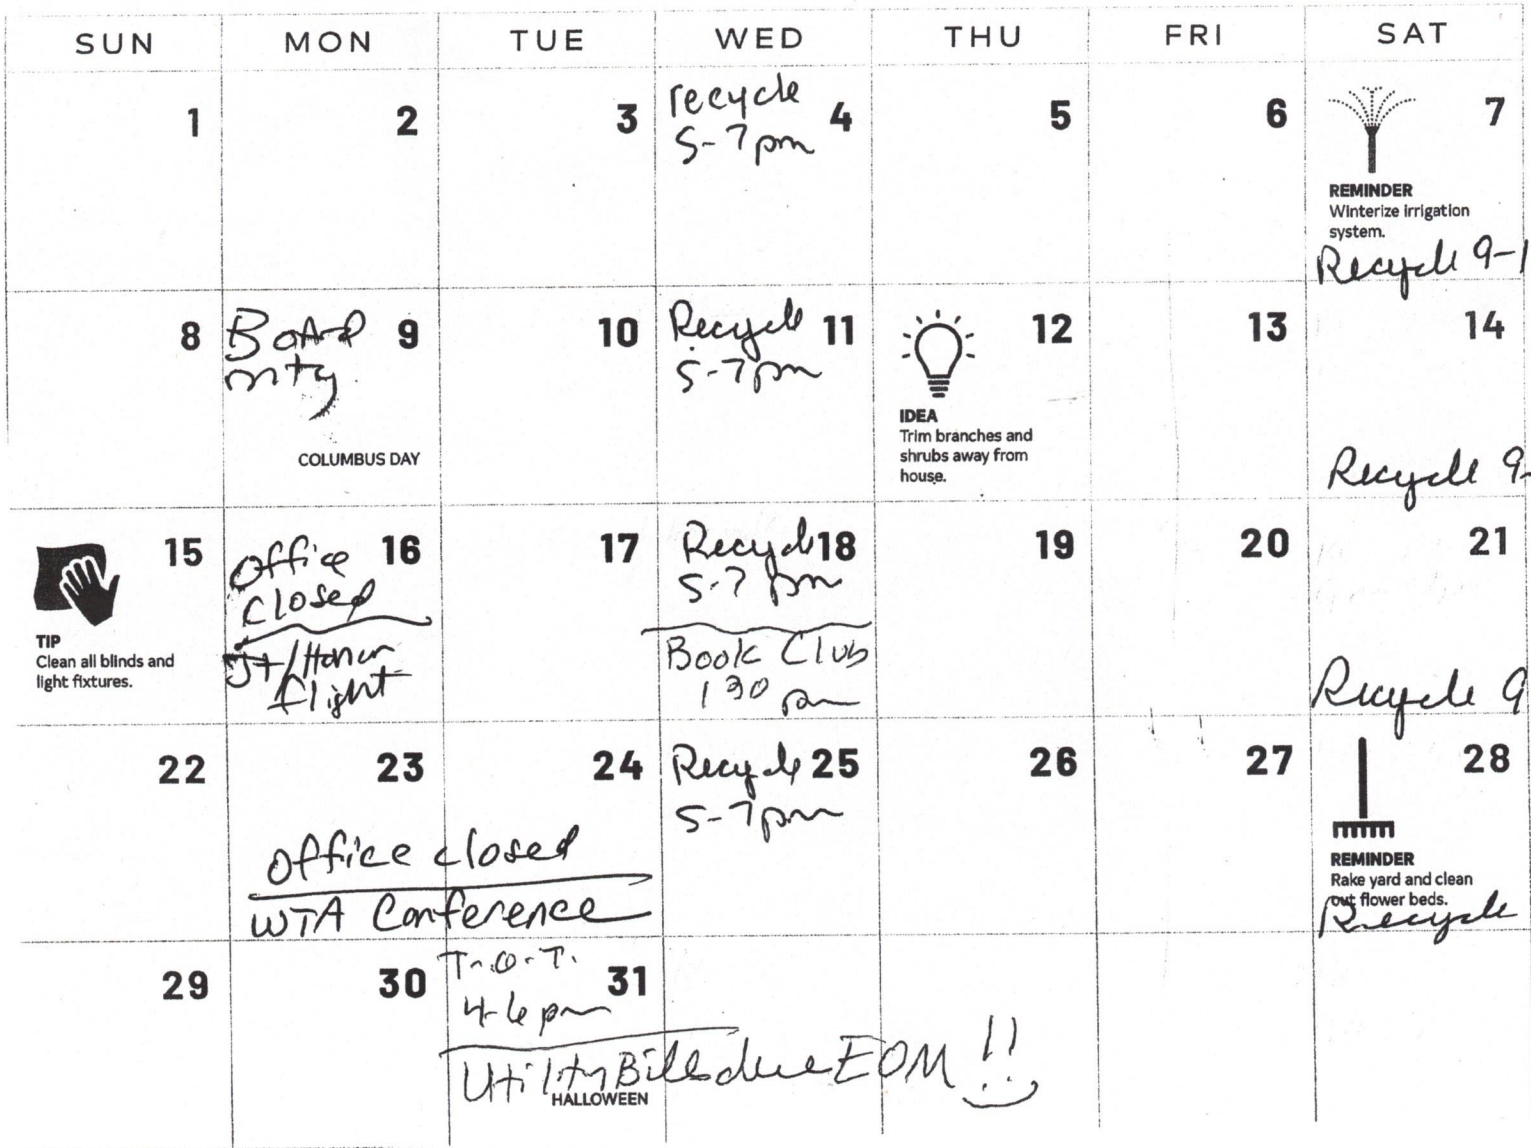 SUN MON TUE WED THU FRI SAT
1
2
3
recycle
5-7pm
4
5
6
7
REMINDER
Winterize irrigation
system.
Recycle 9-1
8
Board
mtg
9
COLUMBUS DAY
10
Recycle
5-7pm
11
12
IDEA
Trim branches and
shrubs away from
house.
13
14
Recycle 9-
15
TIP
Clean all blinds and
light fixtures.
Office
closed
16
/Honor
flight
17
Recycle
5-7 pm
18
Book Club
1 30
pm
19
20
21
Recycle 9
22
23
24
office closed
WTA Conference
Recycle
5-7pm
25
26
27
28
REMINDER
Rake yard and clean
out flower beds.
Recycle
29
30
T.O.T.
4-6pm
31
Utility Bills due EOM !!
HALLOWEEN